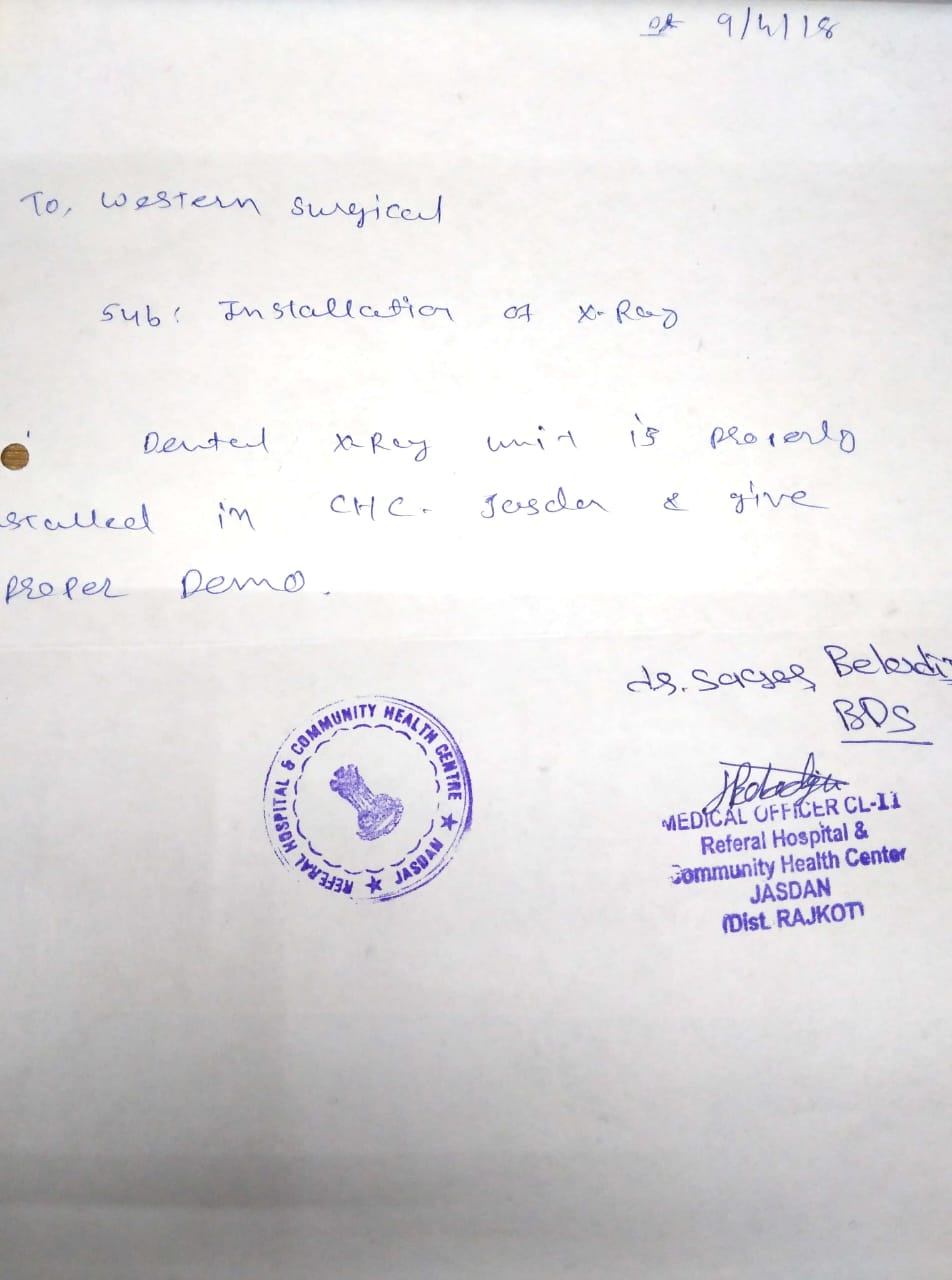 Dt 9/4/18
To, Western Surgical
Sub: Installation of X-Ray
Dental X-Ray unit is properly
stalled in CHC. Jasdan & give
proper Demo.
dr. Sagar
BDS
REFERAL HOSPITAL & COMMUNITY HEALTH CENTRE
★ JASDAN ★
MEDICAL OFFICER CL-II
Referal Hospital &
Community Health Center
JASDAN
(Dist. RAJKOT)